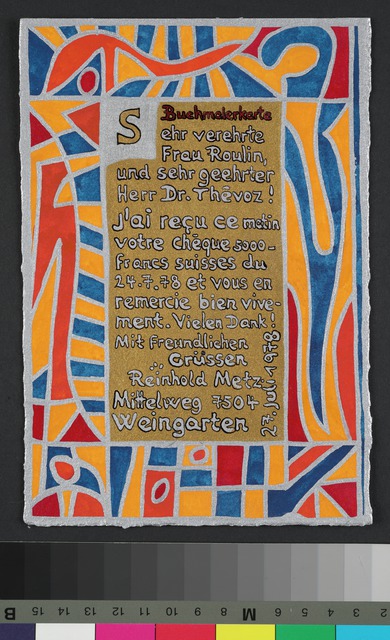 Buchmalerkarte
Sehr verehrte
Frau Roulin,
und sehr geehrter
Herr Dr. Thévoz!
J'ai reçu ce matin
votre chèque 5000-
francs suisses du
24.7.78 et vous en
remercie bien vive-
ment. Vielen Dank!
Mit freundlichen
Grüssen
Reinhold Metz
Mittelweg 7504-
Weingarten
27. Juli 1978
B 15 14 13 12 11 10 9 8 M 7 6 5 4 3 2